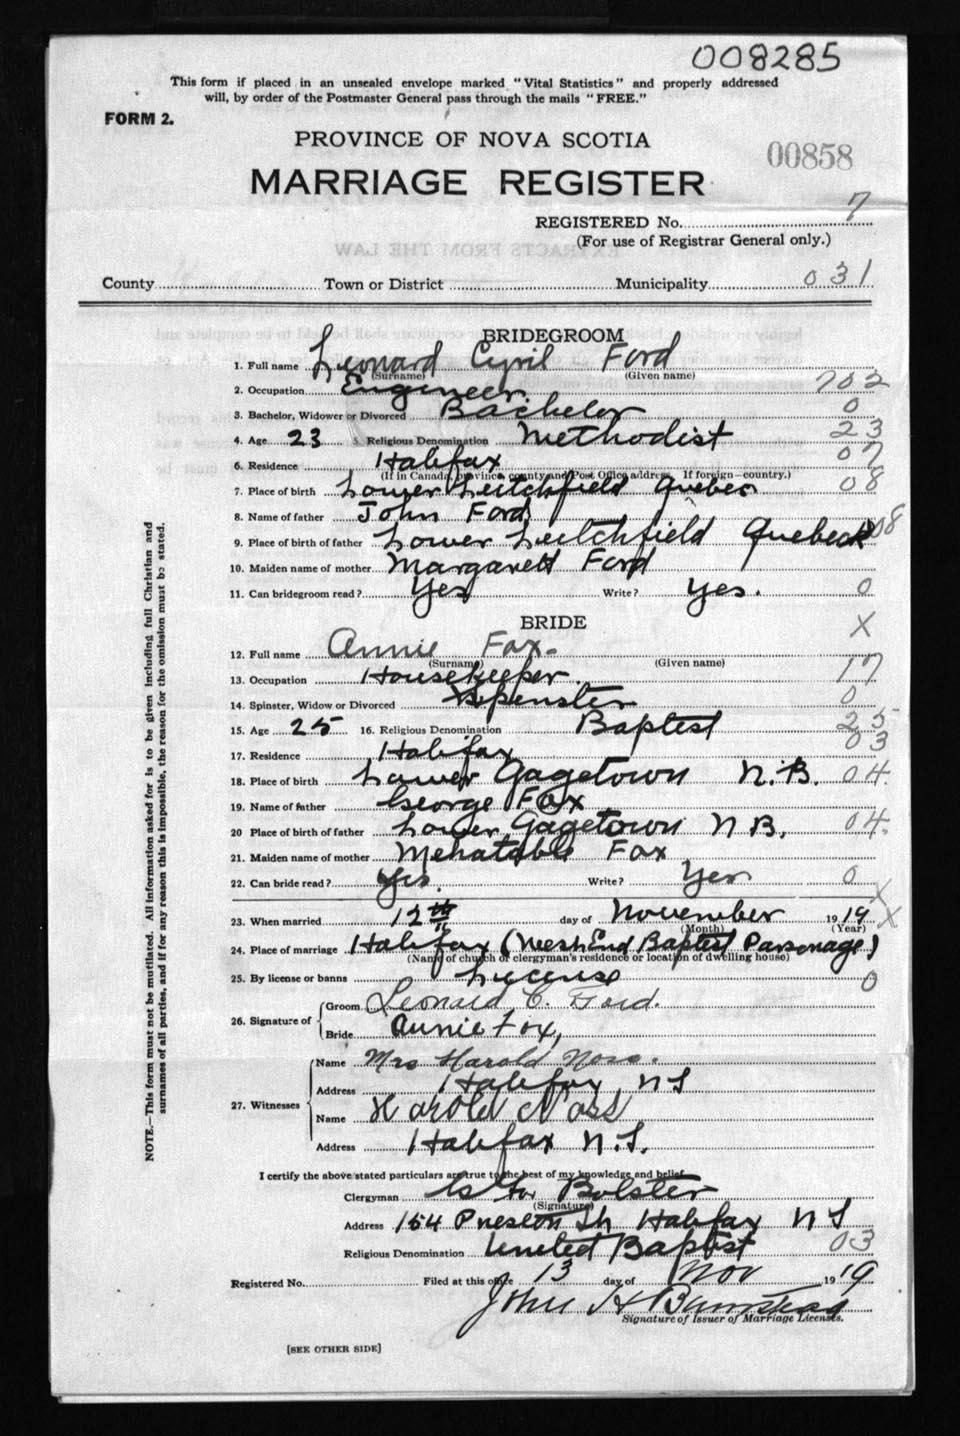 008285
This form if placed in an unsealed envelope marked "Vital Statistics" and properly addressed
will, by order of the Postmaster General pass through the mails "FREE."
FORM 2.
PROVINCE OF NOVA SCOTIA
00858
MARRIAGE REGISTER
REGISTERED No. 7
(For use of Registrar General only.)
County Town or District Municipality 031
BRIDEGROOM
1. Full name Leonard Cyril Ford
(Surname) (Given name)
2. Occupation Engineer 702
3. Bachelor, Widower or Divorced Bachelor 0
4. Age 23 5. Religious Denomination Methodist 23
6. Residence Halifax 07
(If in Canada, province, county and Post Office address. If foreign—country.)
7. Place of birth Lower Leitchfield Quebec 08
8. Name of father John Ford
9. Place of birth of father Lower Leitchfield Quebeck 08
10. Maiden name of mother Margarett Ford
11. Can bridegroom read? Yes Write? Yes. 0
BRIDE X
12. Full name Annie Fox.
(Surname) (Given name)
13. Occupation Housekeeper 17
14. Spinster, Widow or Divorced Spenster 0
15. Age 25 16. Religious Denomination Baptist 25
17. Residence Halifax 03
18. Place of birth Lower Gagetown N.B. 04.
19. Name of father George Fox
20 Place of birth of father Lower Gagetown N B. 04.
21. Maiden name of mother Mehatable Fox
22. Can bride read? Yes. Write? Yes 0
X
23. When married 12th day of November 1919 X
(Month) (Year)
24. Place of marriage Halifax (West End Baptist Parsonage)
(Name of church or clergyman's residence or location of dwelling house)
25. By license or banns License 0
26. Signature of
Groom Leonard C. Ford.
Bride Annie Fox,
27. Witnesses
Name Mrs Harold Noss.
Address Halifax N S
Name Harold Noss
Address Halifax N.S.
I certify the above stated particulars are true to the best of my knowledge and belief
Clergyman Bolster
(Signature)
Address 154 Preston St Halifax N S
Religious Denomination United Baptist 03
Registered No. Filed at this office 13 day of Nov 1919
John H
Signature of Issuer of Marriage Licenses.
[SEE OTHER SIDE]
NOTE.—This form must not be mutilated. All information asked for is to be given including full Christian and
surnames of all parties, and if for any reason this is impossible, the reason for the omission must be stated.